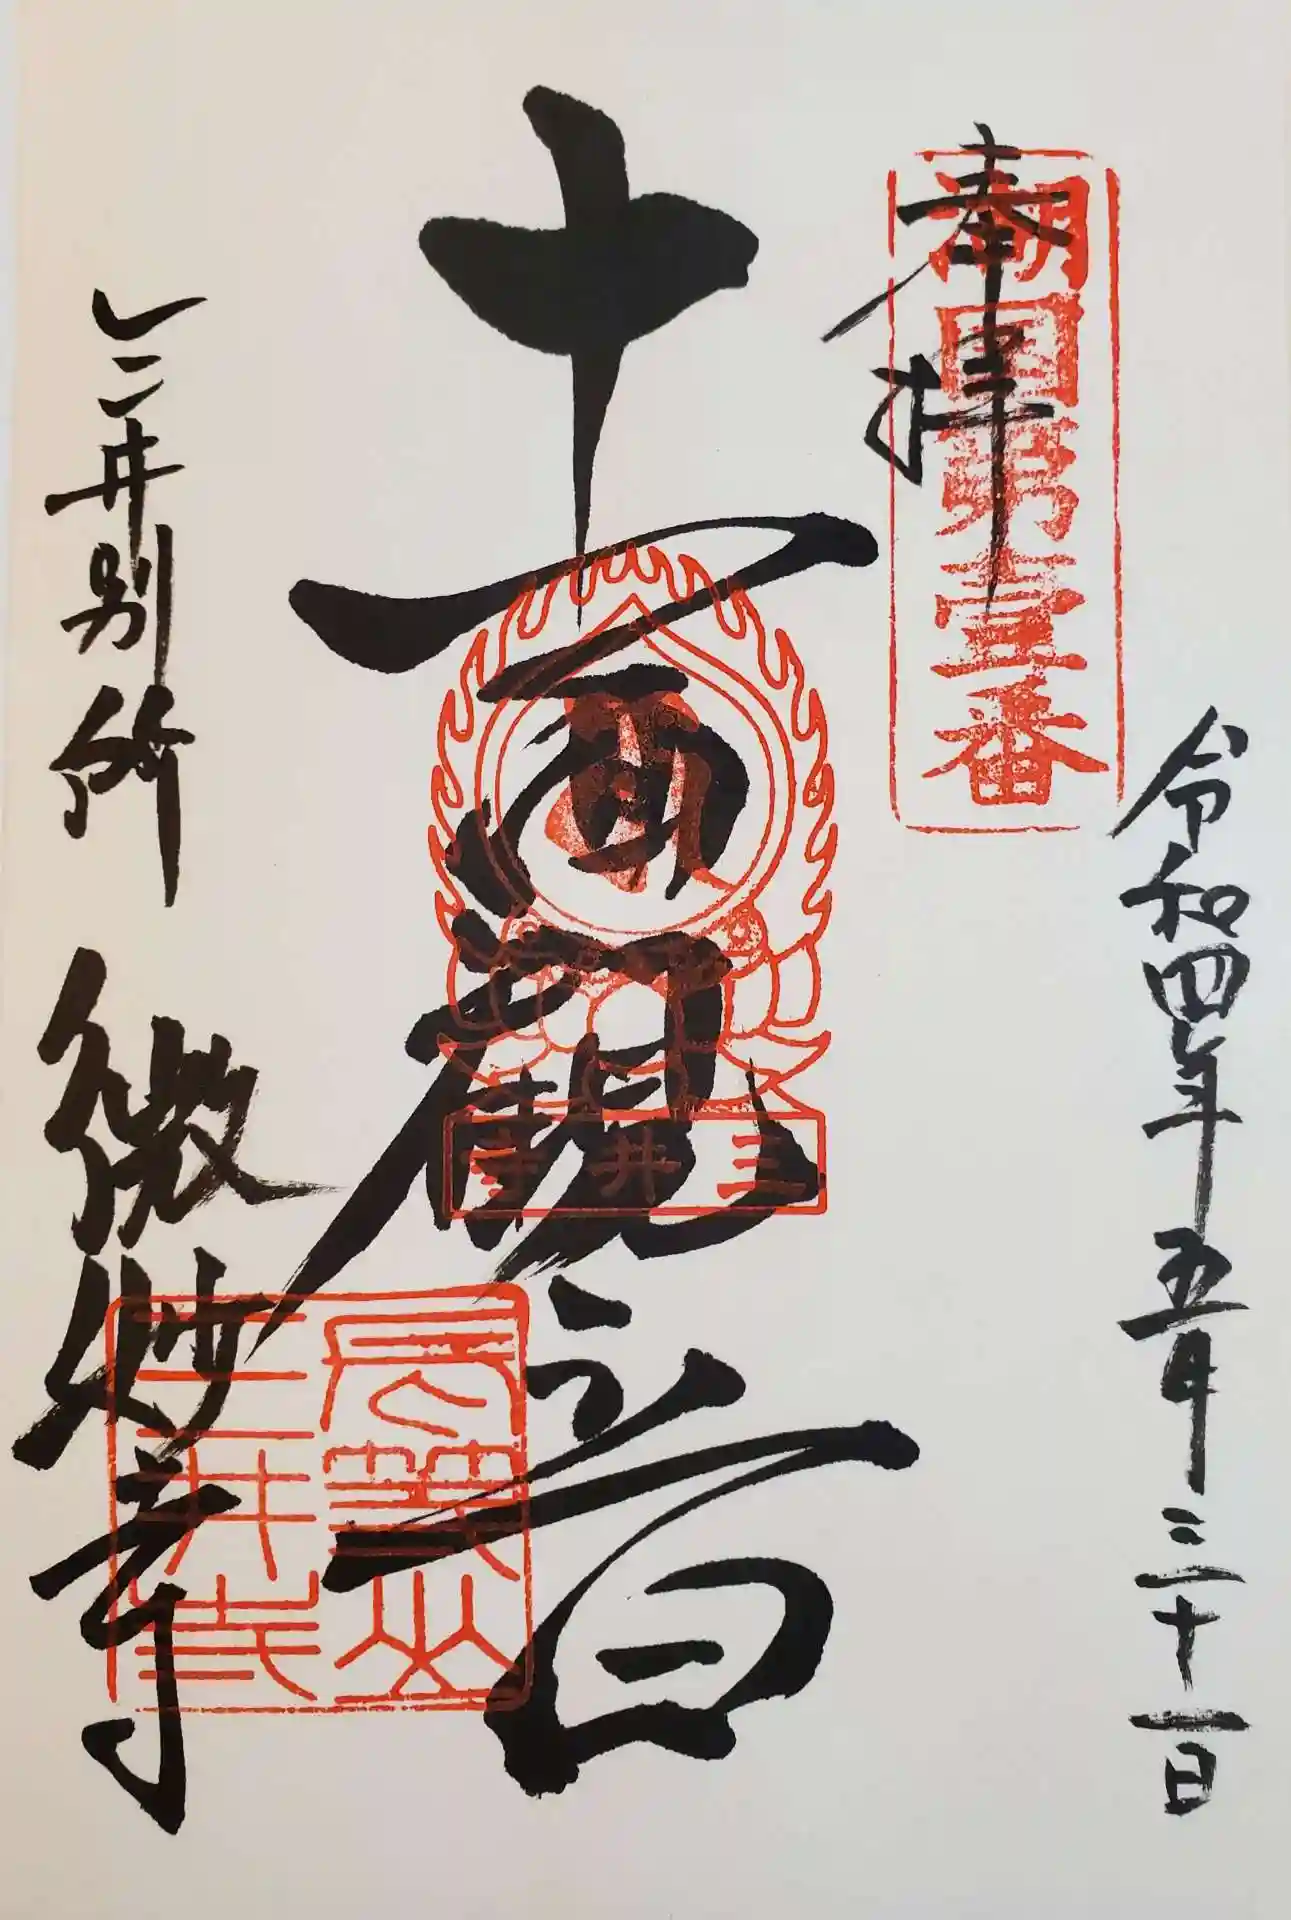 奉拝
湖国第壹番
令和四年五月三十一日
十一面観音
三井寺
三井別所
微妙寺
長等山